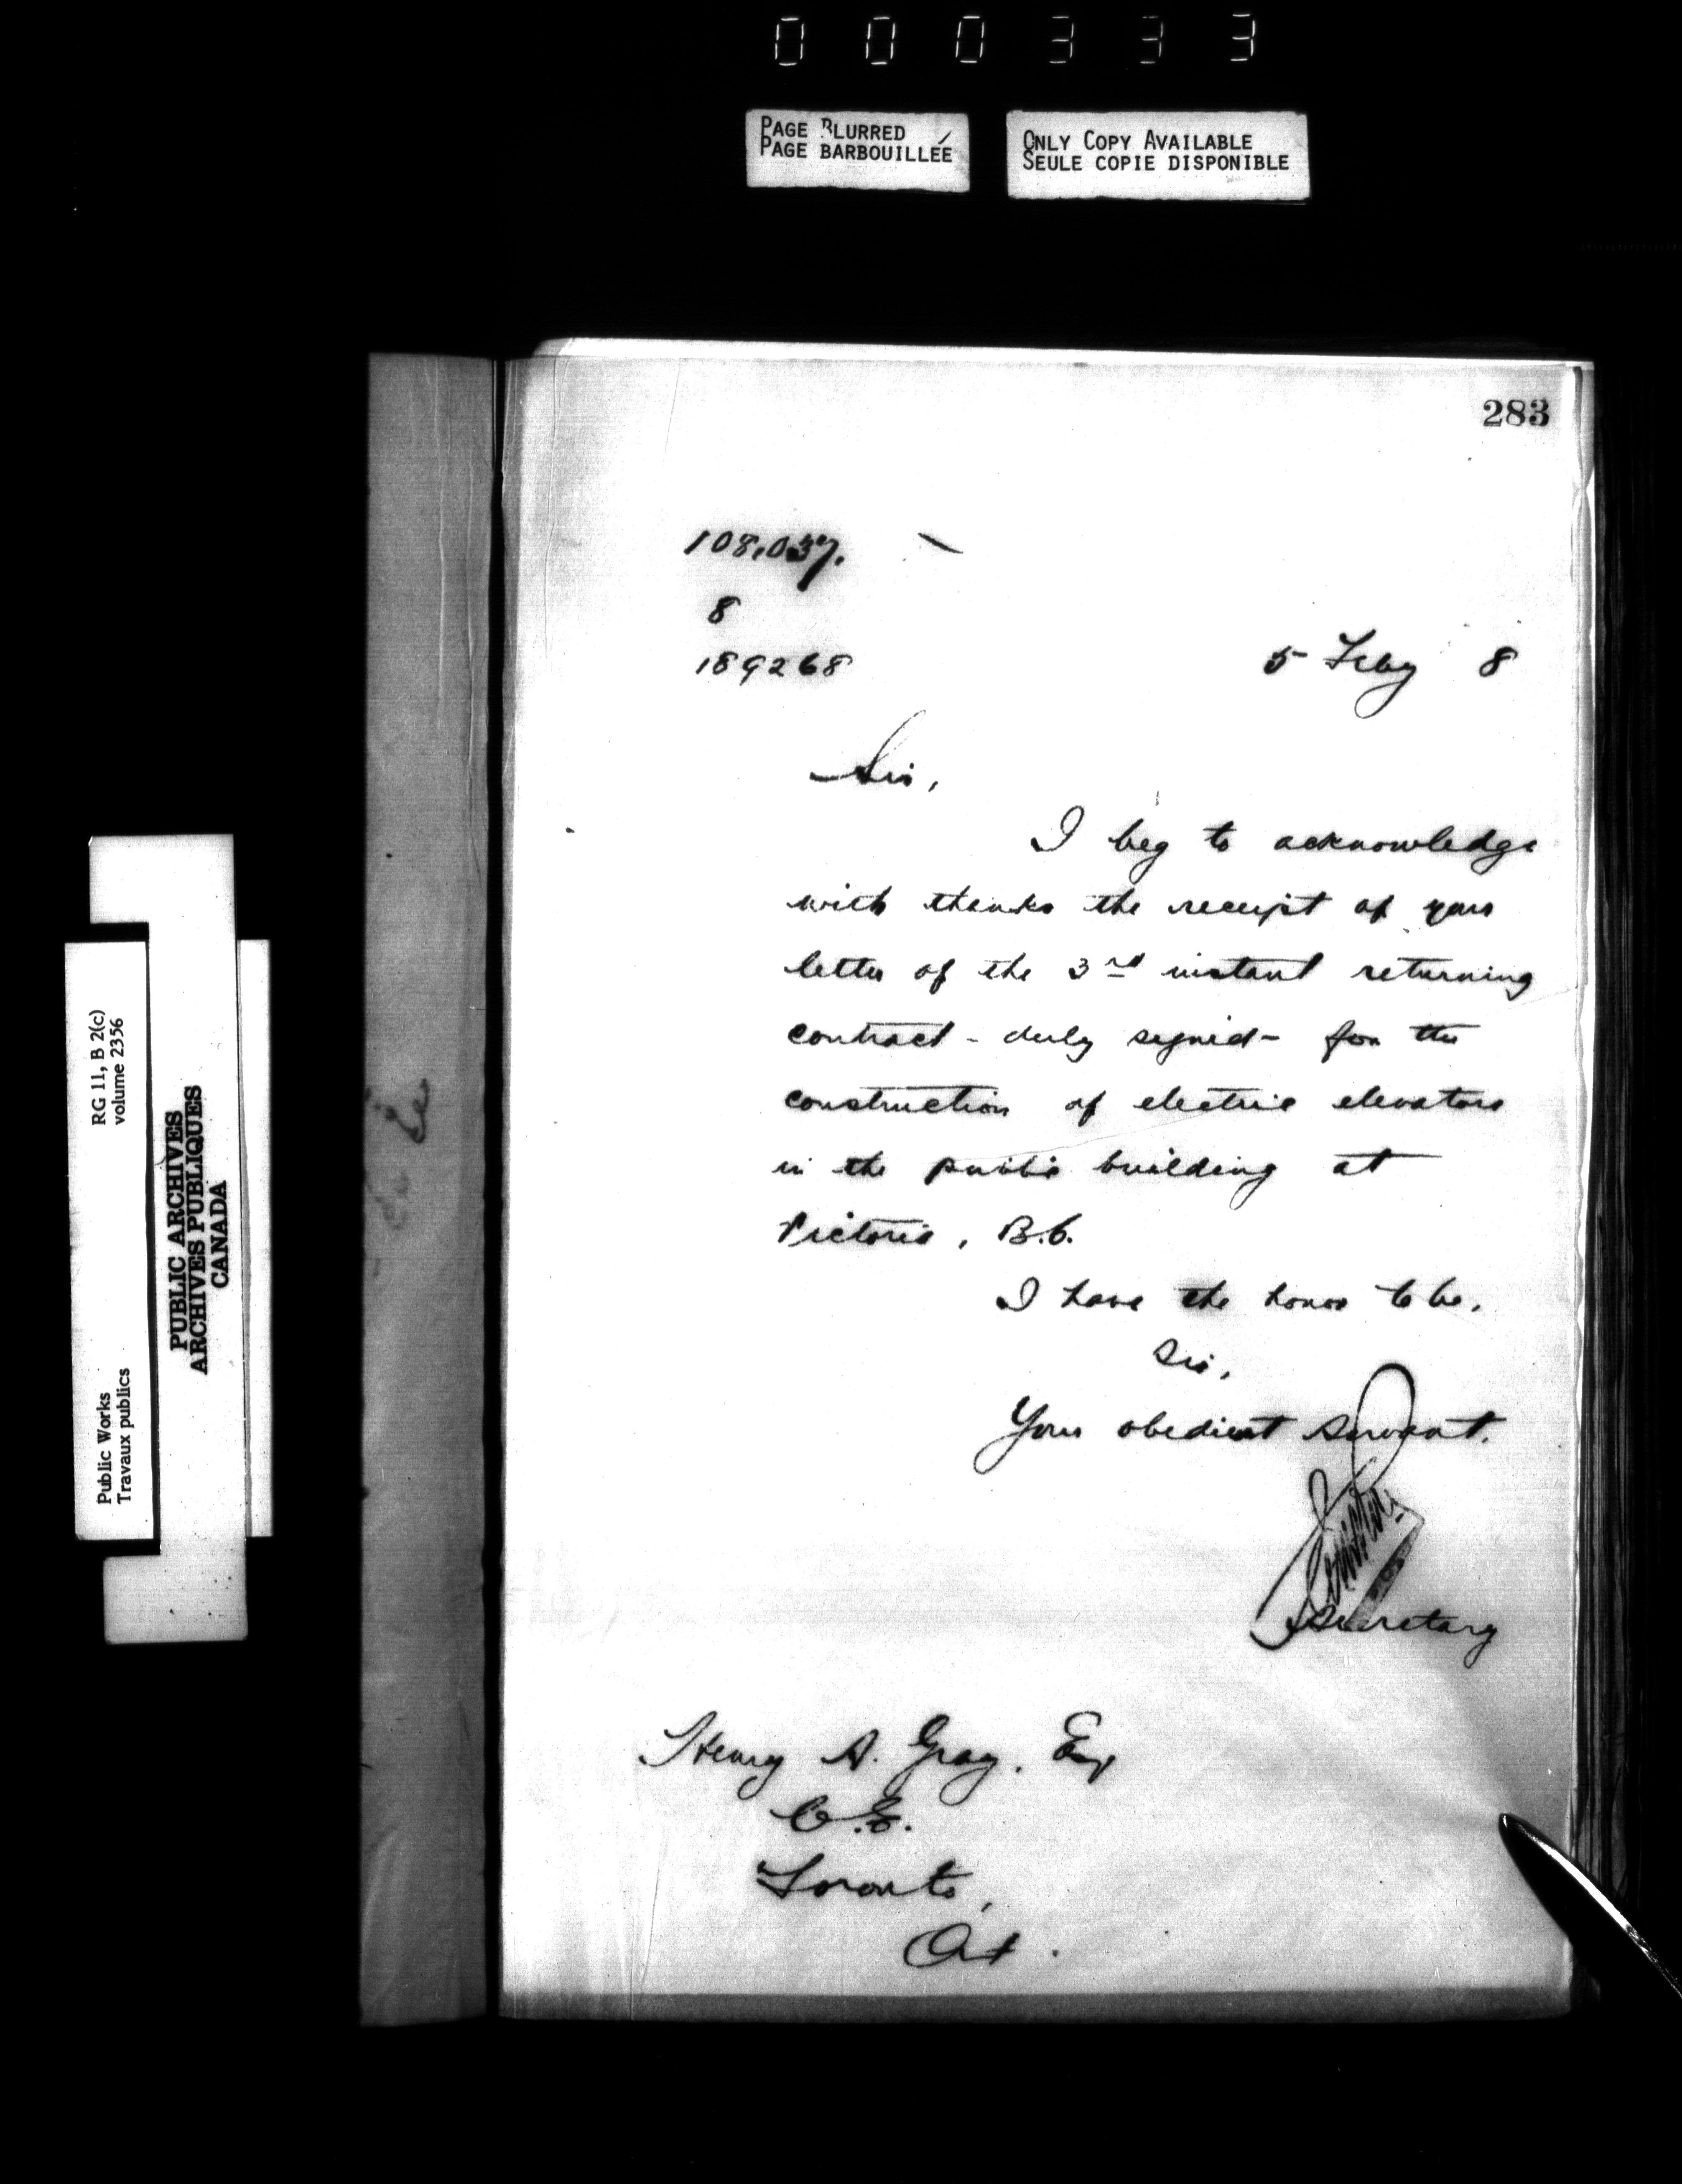 000333
PAGE BLURRED
PAGE BARBOUILLÉE
ONLY COPY AVAILABLE
SEULE COPIE DISPONIBLE
283
108,037.
8
189268
5 Feby 8
Sir,
I beg to acknowledge
with thanks the receipt of your
letter of the 3rd instant returning
contract - duly signed - for the
construction of electric elevators
in the public building at
Victoria, B.C.
I have the honor to be,
Sir,
Your obedient servant.
Secretary
Henry A. Gray, Esq
C.E.
Toronto,
Ont.
RG 11, B 2(c)
volume 2356
Public Works
Travaux publics
PUBLIC ARCHIVES
ARCHIVES PUBLIQUES
CANADA